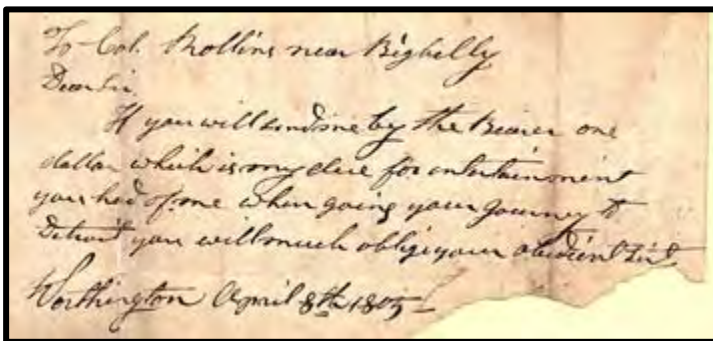 To Col. Rollins near Bigbelly
Dear Sir,
If you will send me by the Bearer one
dollar which is my due for entertainment
you had of me when going your Journey to
Detroit you will much oblige your obedient
Worthington April 8th 1805